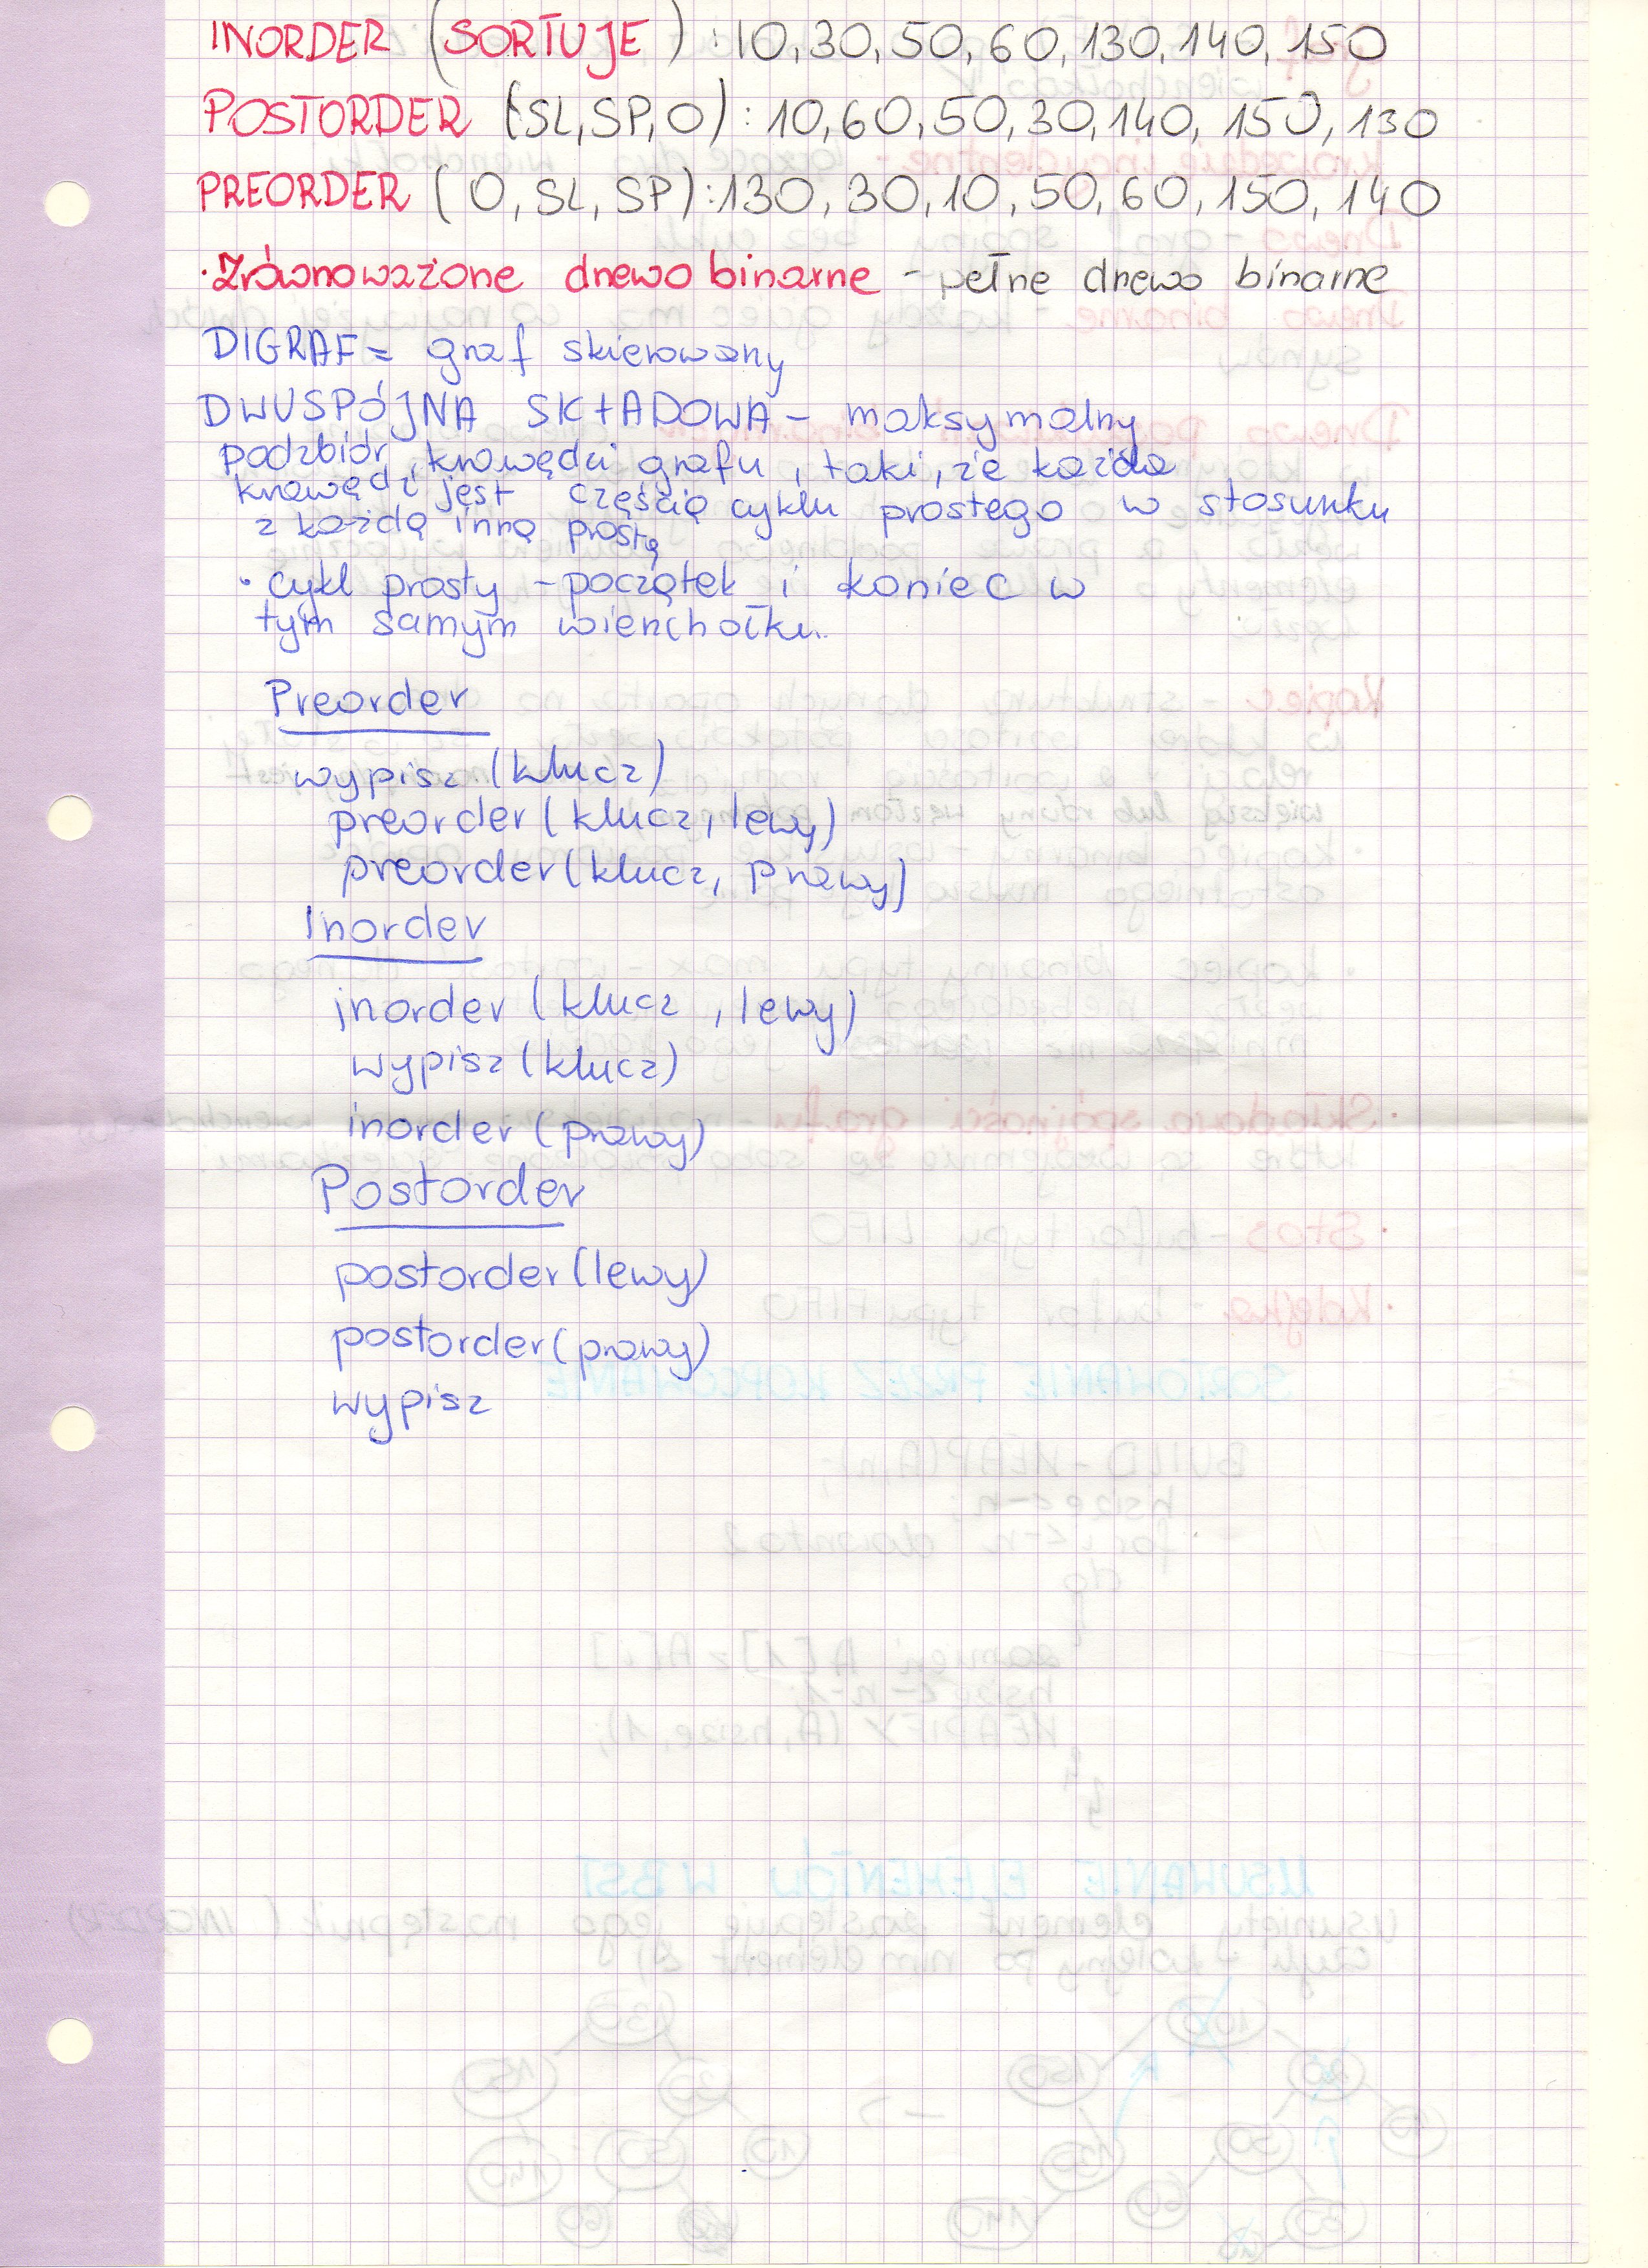 INORDER (SORTUJE) : 10, 30, 50, 60, 130, 140, 150
POSTORDER (SL, SP, O) : 10, 60, 50, 30, 140, 150, 130
PREORDER (O, SL, SP) : 130, 30, 10, 50, 60, 150, 140
· Zrównoważone drzewo binarne - pełne drzewo binarne
DIGRAF = graf skierowany
DWUSPÓJNA SKŁADOWA - maksymalny
podzbiór krawędzi grafu, taki, że każda
krawędź jest częścią cyklu prostego w stosunku
z każdą inną prostą
· cykl prosty - początek i koniec w
tym samym wierzchołku.
Preorder
wypisz (klucz)
preorder (klucz, lewy)
preorder (klucz, prawy)
Inorder
inorder (klucz, lewy)
wypisz (klucz)
inorder (prawy)
Postorder
postorder (lewy)
postorder (prawy)
wypisz